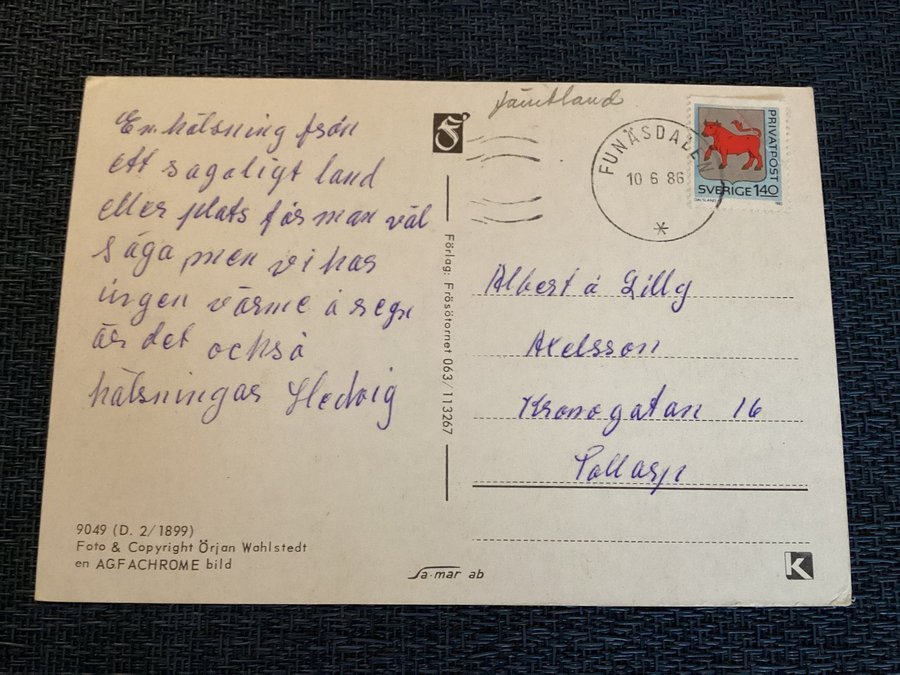 Jämtland
En hälsning från
ett sagoligt land
eller plats får man väl
säga men vi har
ingen värme å regn
är det också
hälsningar Hedvig
FUNÄSDALEN
10 6 86
*
PRIVATPOST
SVERIGE 140
DALSLAND
Albert å Lilly
Axelsson
Kronogatan 16
Förlag: Frösötornet 063/113267
9049 (D. 2/1899)
Foto & Copyright Örjan Wahlstedt
en AGFACHROME bild
Sa-mar ab
K